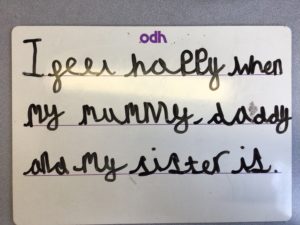 odh
I feel happy when
my mummy, daddy
and my sister is.